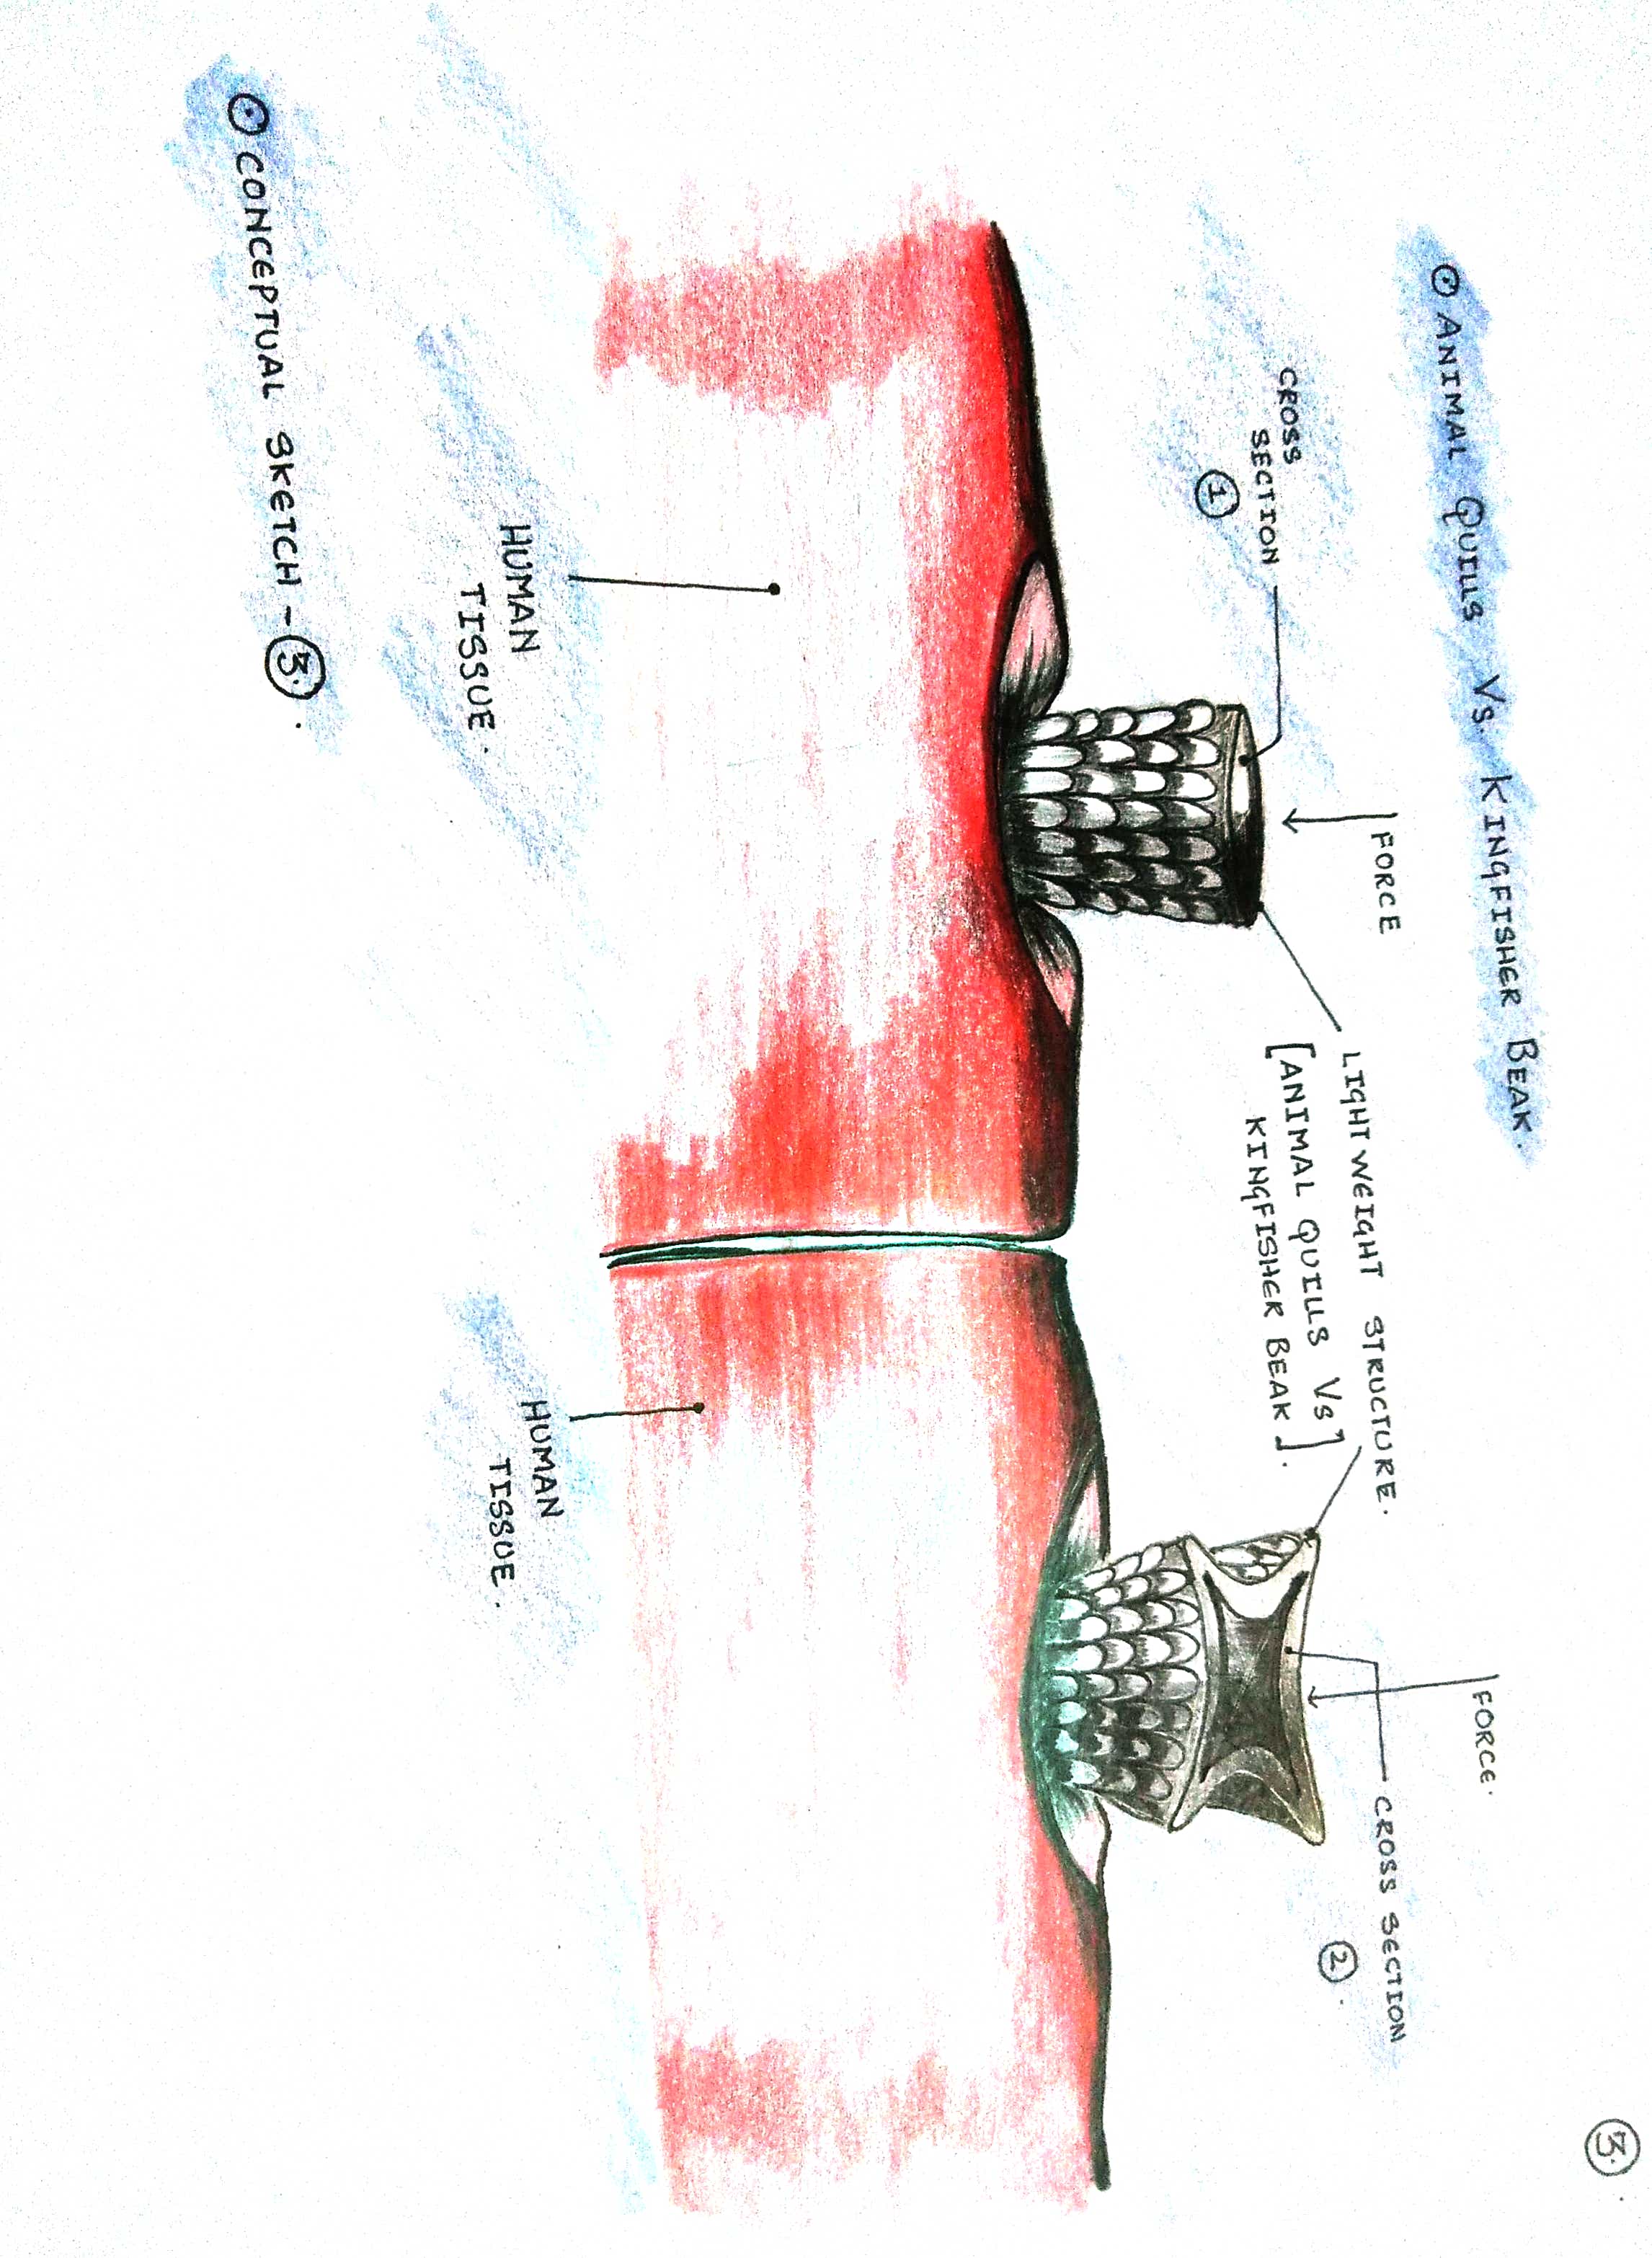 3.
ANIMAL QUILLS Vs. KINGFISHER BEAK.
FORCE
FORCE.
CROSS
SECTION
1
LIGHT WEIGHT STRUCTURE.
[ANIMAL QUILLS Vs]
KINGFISHER BEAK].
CROSS SECTION
2.
HUMAN
TISSUE.
HUMAN
TISSUE.
CONCEPTUAL SKETCH - 3.